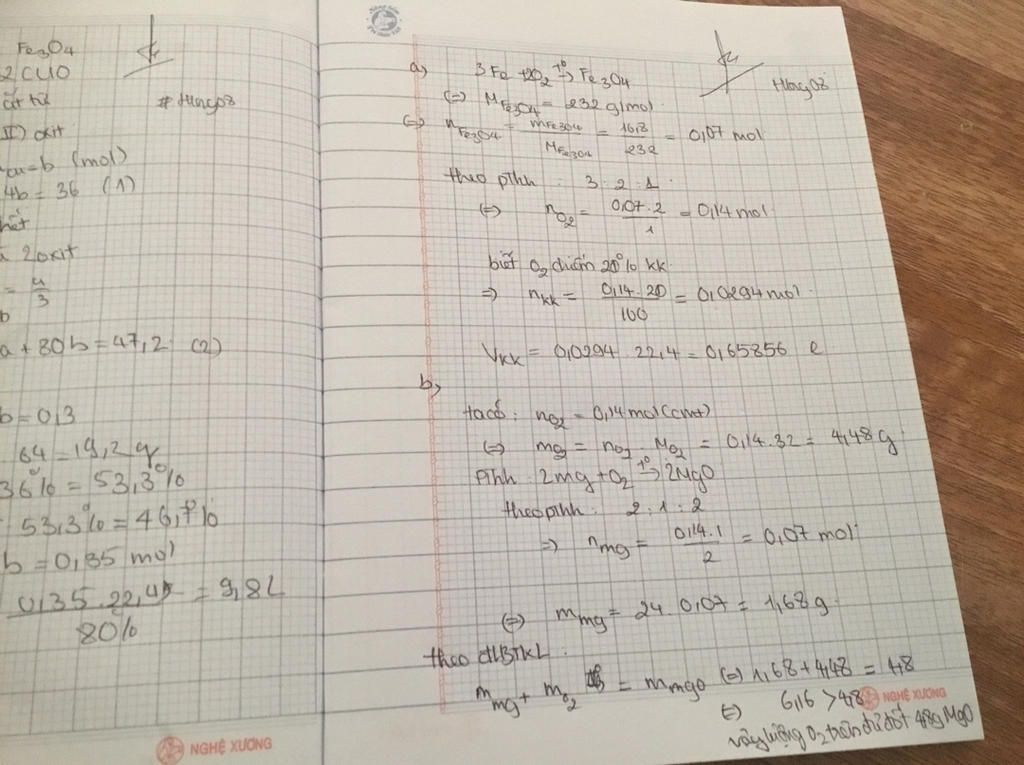 Fe3O4
2 CuO
# Hưng08
II) oxit
a=b (mol)
4b = 36 (1)
2 oxit
= 4/3
b
a + 80b = 47,2 (2)
b = 0,3
64 = 19,2 g
36% = 53,3%
53,3% = 46,7%
b = 0,35 mol
0,35.22,4 / 80% = 9,8L
NGHỆ XƯƠNG
a, 3Fe + 2O2 t°→ Fe3O4
Hưng08
(=) MFe3O4 = 232 g/mol
(=) nFe3O4 = mFe3O4 / MFe3O4 = 16,8 / 232 = 0,07 mol
theo pthh : 3 : 2 : 1
(=) nO2 = 0,07.2 / 1 = 0,14 mol
biết O2 chiếm 20% kk
=> nkk = 0,14.20 / 100 = 0,0294 mol
Vkk = 0,0294.22,4 = 0,65856 l
b,
ta có: nO2 = 0,14 mol (cmt)
(=) mO2 = nO2 . MO2 = 0,14.32 = 4,48 g
Pthh : 2mg + O2 t°→ 2MgO
theo pthh : 2 : 1 : 2
=> nmg = 0,14.1 / 2 = 0,07 mol
(=) mmg = 24.0,07 = 1,68 g
theo đLBTKL
mmg + mO2 = mmgO (=) 1,68 + 4,48 = 4,8
(=) 6,16 > 4,8
NGHỆ XƯƠNG
vậy lượng O2 trên đủ đốt 4,8g MgO